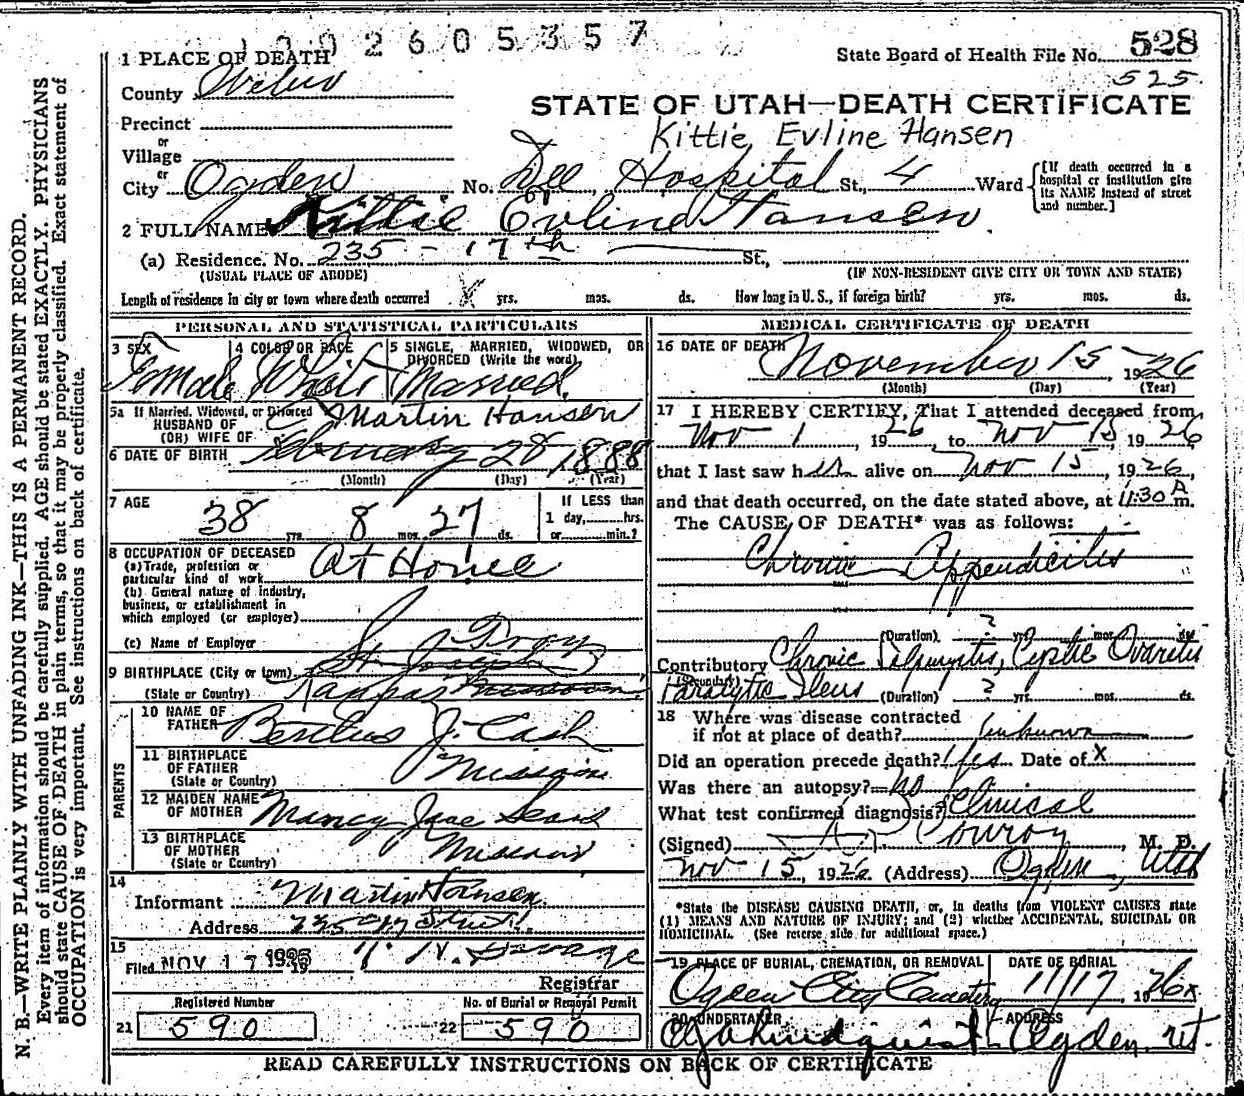 1 9 0 2 6 0 5 3 5 7
1 PLACE OF DEATH
State Board of Health File No. 528
525
County Weber
STATE OF UTAH—DEATH CERTIFICATE
Precinct
Kittie Evline Hansen
or
Village
or
City Ogden No. Dee Hospital St., 4 Ward
[If death occurred in a hospital or institution give its NAME instead of street and number.]
2 FULL NAME Kittie Evline Hansen
(a) Residence. No. 235 - 17th St.,
(USUAL PLACE OF ABODE) (IF NON-RESIDENT GIVE CITY OR TOWN AND STATE)
Length of residence in city or town where death occurred X yrs. mos. ds. How long in U. S., if foreign birth? yrs. mos. ds.
PERSONAL AND STATISTICAL PARTICULARS
3 SEX
Female
4 COLOR OR RACE
White
5 SINGLE, MARRIED, WIDOWED, OR DIVORCED (Write the word)
Married
5a If Married, Widowed, or Divorced
HUSBAND OF
(OR) WIFE OF
Martin Hansen
6 DATE OF BIRTH February 28, 1888
(Month) (Day) (Year)
7 AGE
38 yrs. 8 mos. 27 ds.
If LESS than
1 day,......hrs.
or......min.?
8 OCCUPATION OF DECEASED
(a) Trade, profession or
particular kind of work At Home
(b) General nature of industry,
business, or establishment in
which employed (or employer)
(c) Name of Employer
Troy
9 BIRTHPLACE (City or town) St. Joseph
(State or Country) Kansas Missouri
PARENTS
10 NAME OF
FATHER J. Cash
11 BIRTHPLACE
OF FATHER
(State or Country) Missouri
12 MAIDEN NAME
OF MOTHER Nancy Jane Sears
13 BIRTHPLACE
OF MOTHER
(State or Country) Missouri
14
Informant Martin Hansen
Address 17 Street
15
Filed NOV 17 1926
Registrar
Registered Number
21 590
No. of Burial or Removal Permit
22 590
MEDICAL CERTIFICATE OF DEATH
16 DATE OF DEATH
November 15 1926
(Month) (Day) (Year)
17 I HEREBY CERTIFY, That I attended deceased from
Nov 1, 1926, to Nov 15 1926
that I last saw her alive on Nov 15, 1926,
and that death occurred, on the date stated above, at 11:30 A m.
The CAUSE OF DEATH* was as follows:
Chronic Appendicitis
(Duration) ? yrs. mos. ds.
Contributory Chronic Salpingitis, Cystic Ovaritis
(Secondary)
Paralytic Ileus (Duration) ? yrs. mos. ds.
18 Where was disease contracted
if not at place of death? Unknown
Did an operation precede death? Yes Date of X
Was there an autopsy? No
What test confirmed diagnosis? Clinical
(Signed) Conroy, M. D.
Nov 15, 1926. (Address) Ogden, Utah
*State the DISEASE CAUSING DEATH, or, in deaths from VIOLENT CAUSES state
(1) MEANS AND NATURE OF INJURY; and (2) whether ACCIDENTAL, SUICIDAL OR
HOMICIDAL. (See reverse side for additional space.)
19 PLACE OF BURIAL, CREMATION, OR REMOVAL
Ogden City Cemetery
DATE OF BURIAL
11/17 1926
20 UNDERTAKER
Lindquist
ADDRESS
Ogden, Ut.
READ CAREFULLY INSTRUCTIONS ON BACK OF CERTIFICATE
N. B.—WRITE PLAINLY WITH UNFADING INK—THIS IS A PERMANENT RECORD.
Every item of information should be carefully supplied. AGE should be stated EXACTLY. PHYSICIANS
should state CAUSE OF DEATH in plain terms, so that it may be properly classified. Exact statement of
OCCUPATION is very important. See instructions on back of certificate.